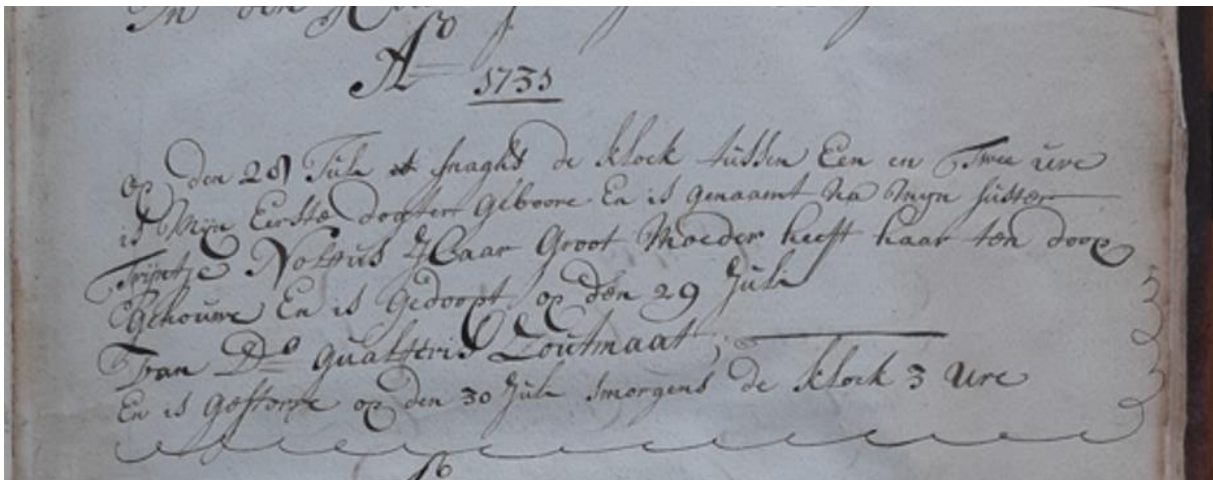 In den
Ao 1731
op den 28 Juli snaghts de klock tussen Een en Twee ure
is Mijn Eerste dogter Geboore En is genaamt Na Mijn suster
Trijntje Nolpus Haar Groot Moeder heeft haar ten doop
Gehouwe En is Gedoopt op den 29 Juli
Van Do Gualteris Zoutmaat,
En is Gestorve op den 30 Juli smorgens de klock 3 Ure
Ao